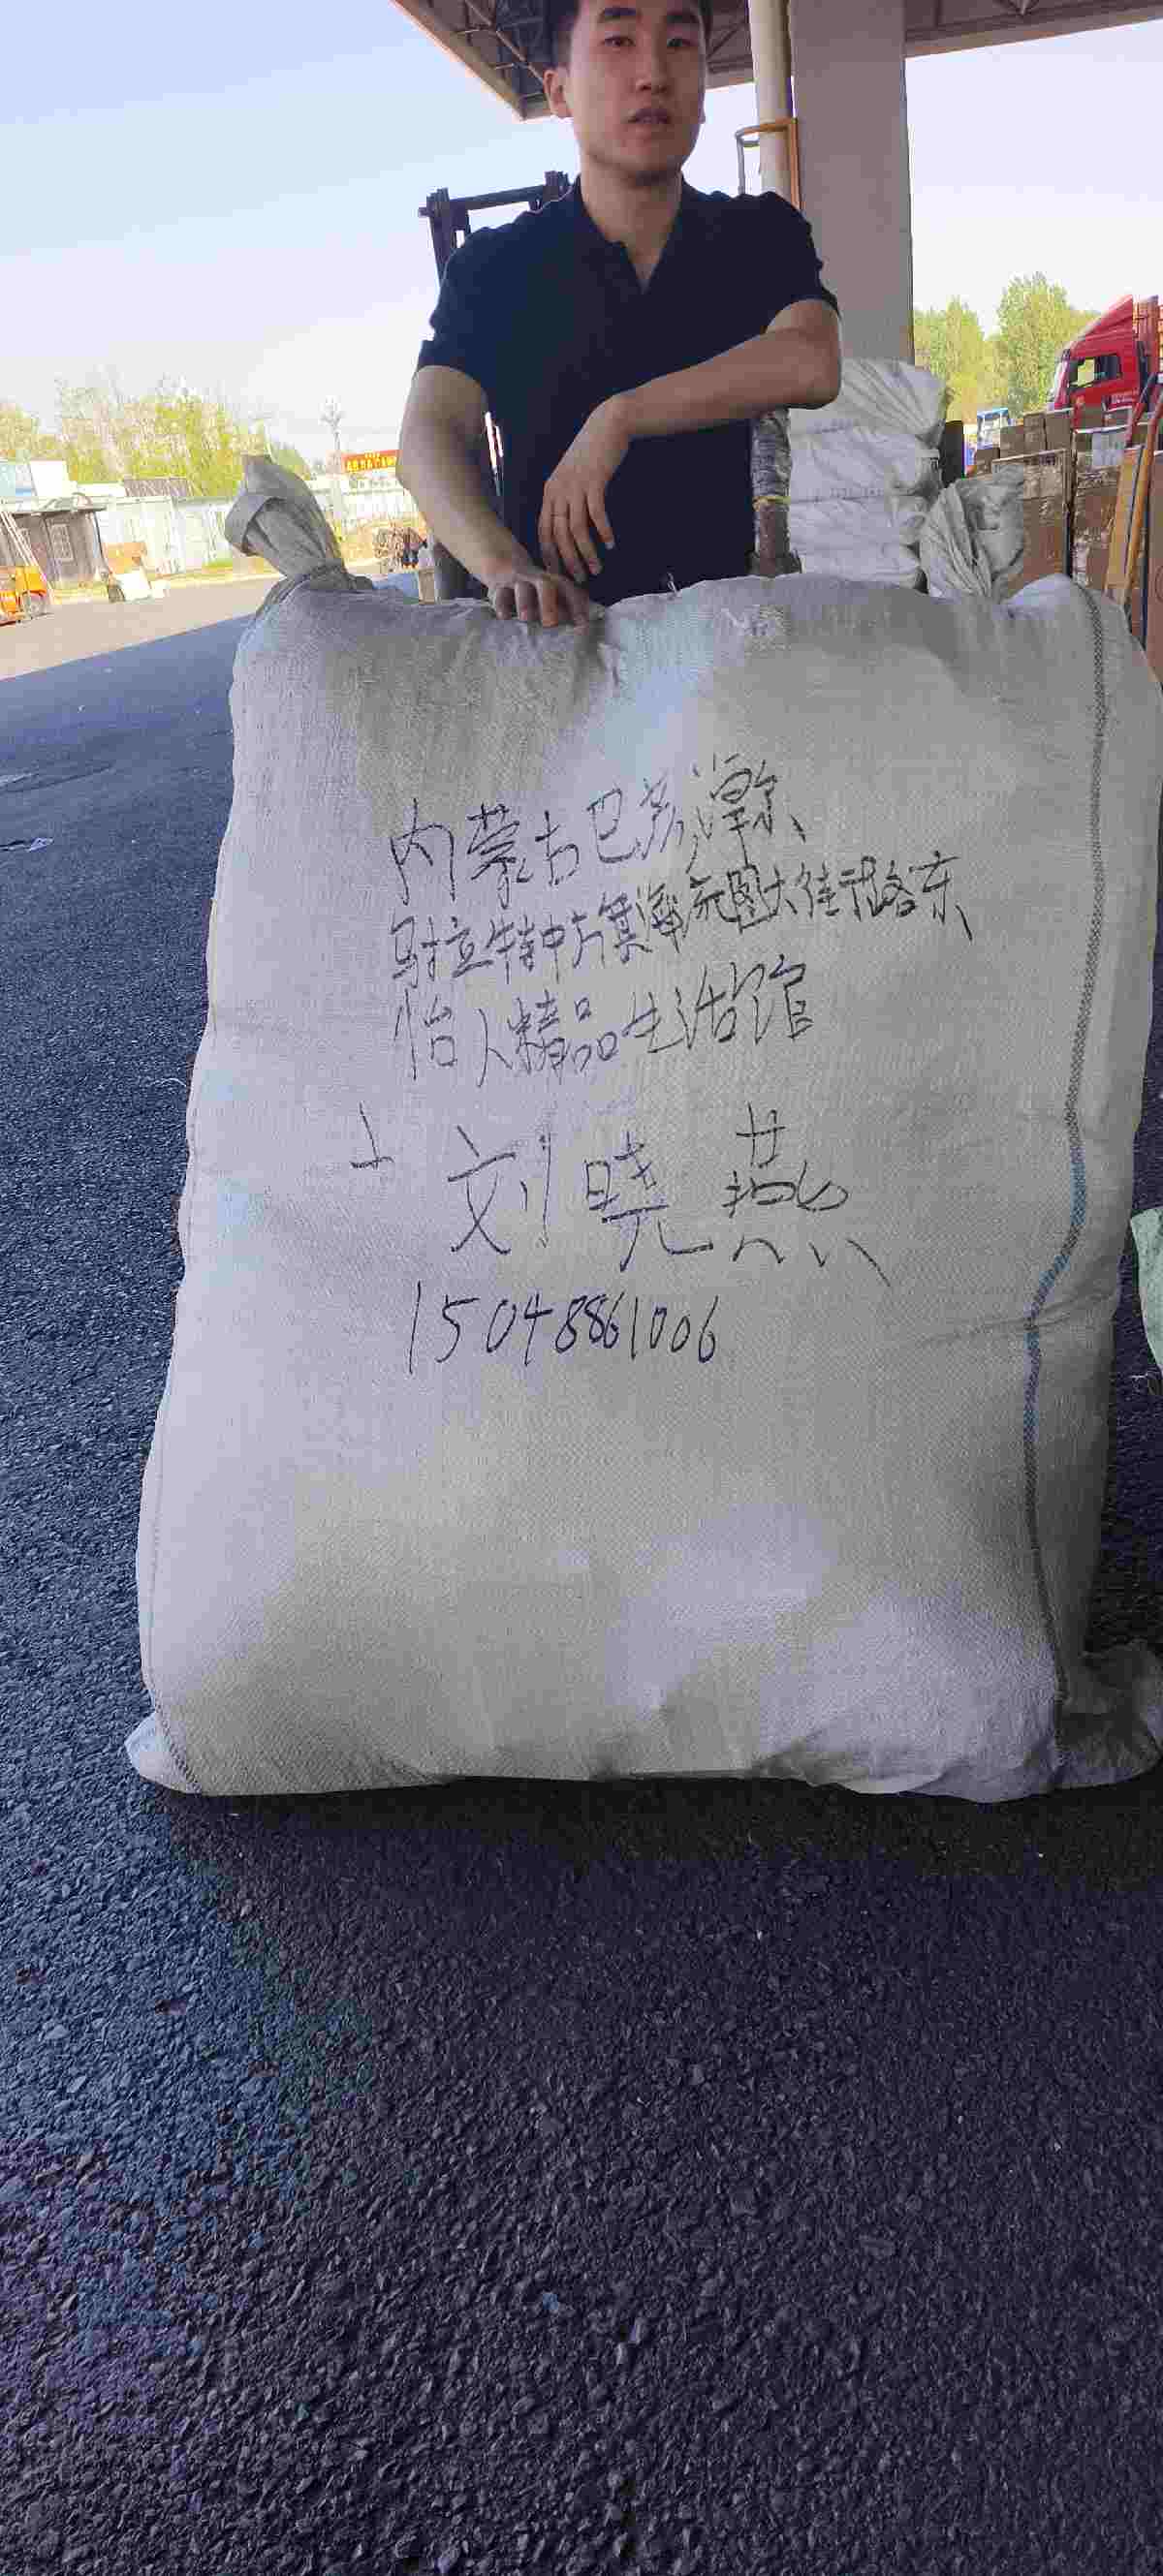 内蒙古巴彦淖尔
射立特中方旗海流图大街武路东
怡人精品生活馆
刘晓燕
15048861006